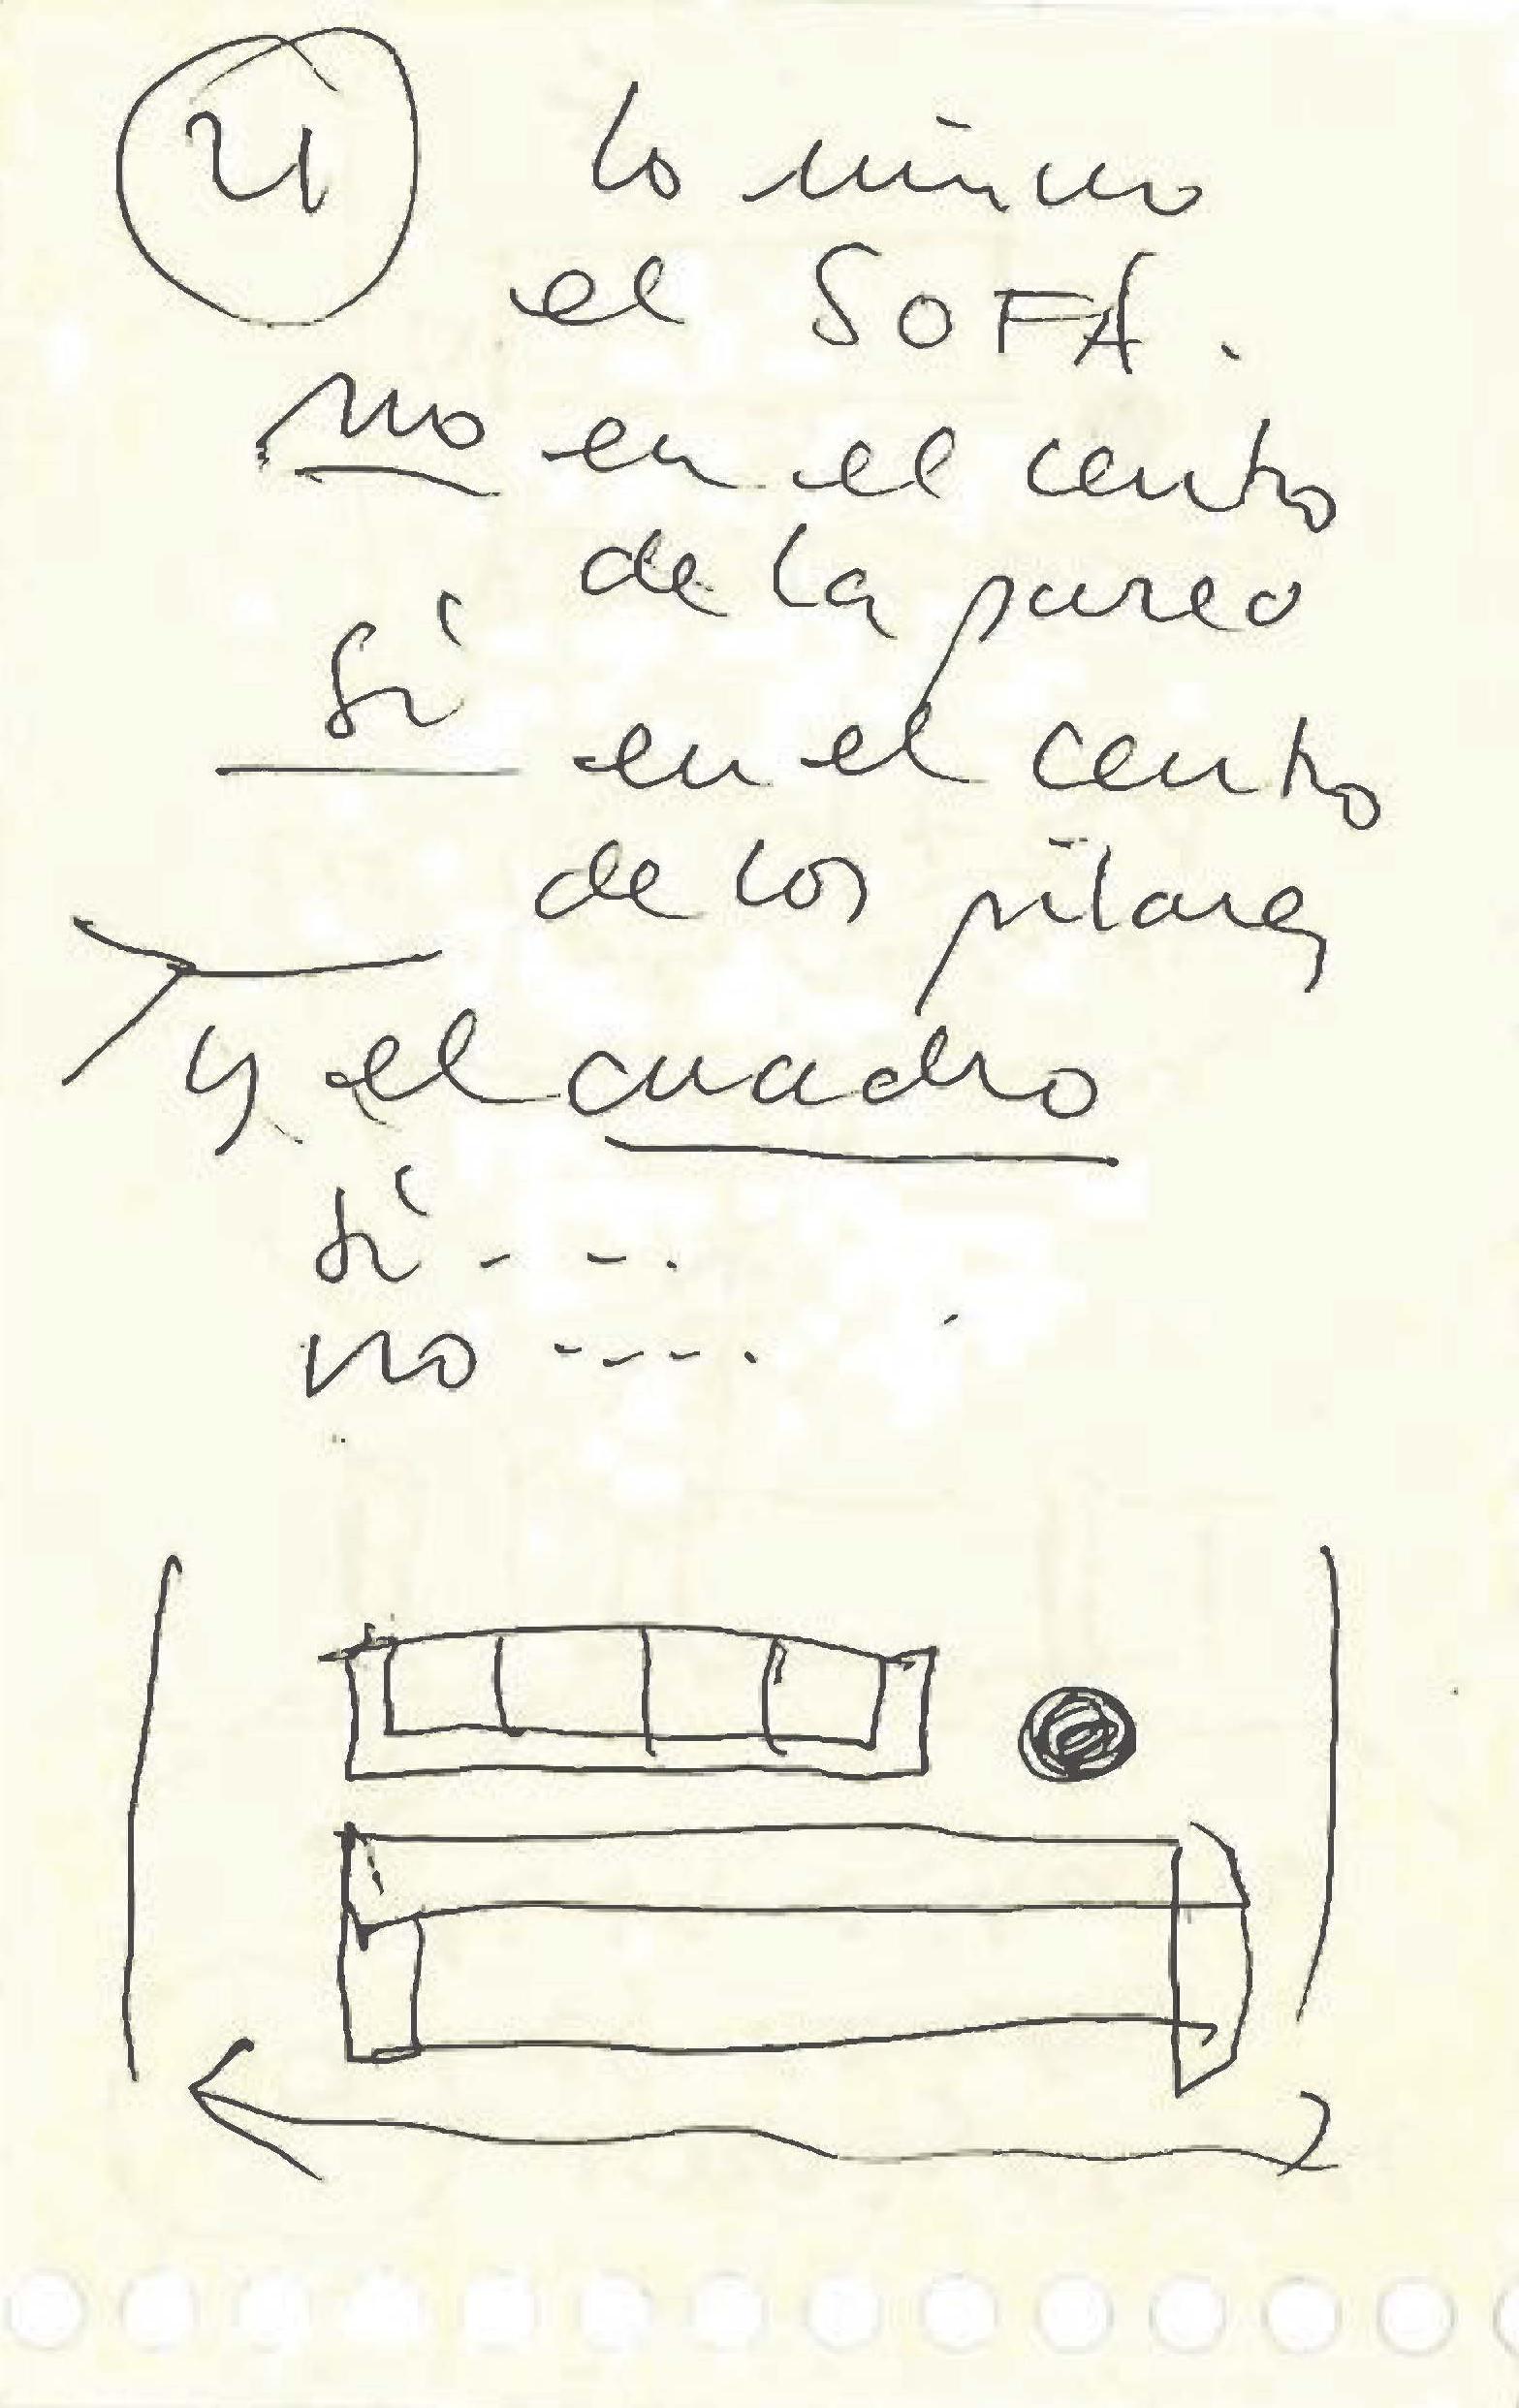 4 lo mismo
el SOFÁ.
no en el centro
de la pared
sí en el centro
de los pilares
y el cuadro
sí - - -
no - - - -